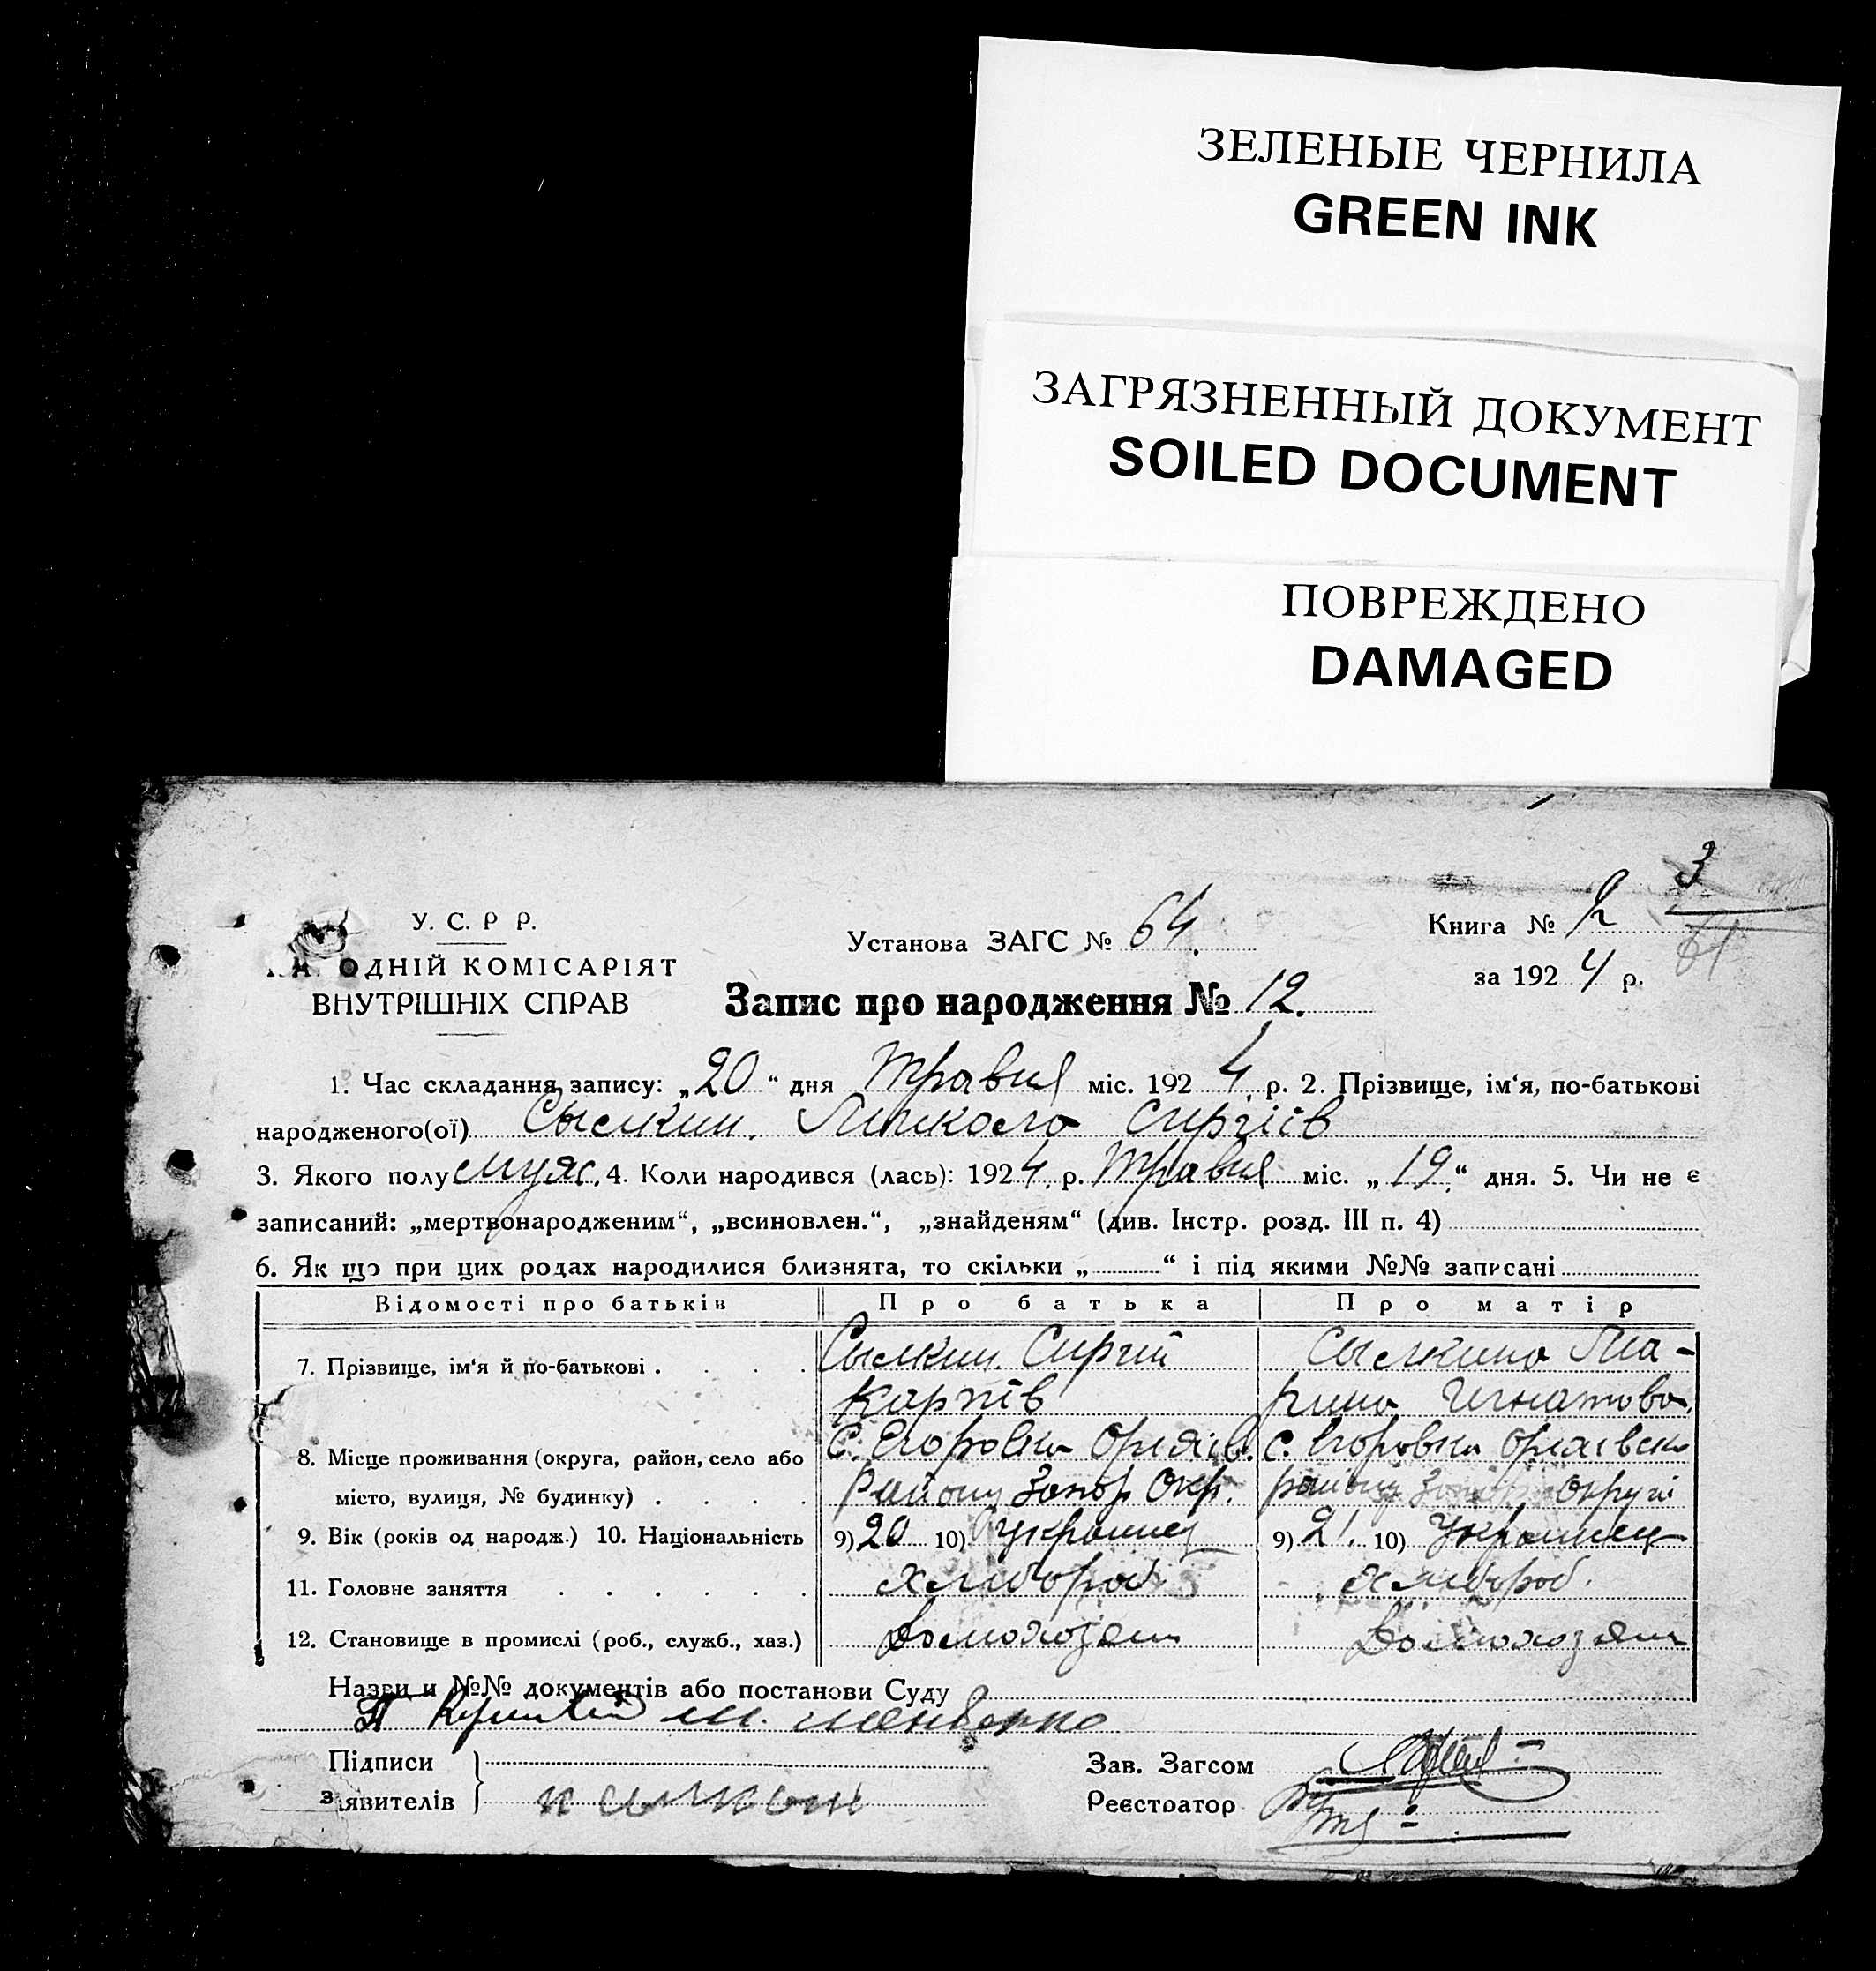 ЗЕЛЕНЫЕ ЧЕРНИЛА
GREEN INK
ЗАГРЯЗНЕННЫЙ ДОКУМЕНТ
SOILED DOCUMENT
ПОВРЕЖДЕНО
DAMAGED
3
61
У. С. Р Р.
ОДНІЙ КОМІСАРІЯТ
ВНУТРІШНІХ СПРАВ
Установа ЗАГС № 64.
Книга №
за 1924 р.
Запис про народження № 12.
1. Час складання запису: „20“ дня Травня міс. 1924 р. 2. Прізвище, ім‘я, по-батькові
народженого(ої) Сылкин. Микола Сиргіів
3. Якого полу муж. 4. Коли народився (лась): 1924 р. Травня міс. „19“ дня. 5. Чи не є
записаний: „мертвонародженим“, „всиновлен.“, „знайденям“ (див. Інстр. розд. III п. 4)
6. Як що при цих родах народилися близнята, то скільки „ “ і під якими №№ записані
Відомості про батьків Про батька Про матір
7. Прізвище, ім‘я й по-батькові . . . . Сылкин. Сиргій Сылкина Ма-
Карпів рина Игнатова.
8. Місце проживання (округа, район, село або С. Егоровка Орляів. с. Егоровка Орлаівск
місто, вулиця, № будинку) . . . . Району Запор Окр. району Запор округи
9. Вік (років од народж.) 10. Національність 9) 20 10) Украинец 9) 21. 10) Украинец
11. Головне заняття . . . . . . хлибороб. хлибороб.
12. Становище в промислі (роб., служб., хаз.) Домохозяин Домохозяин
Назви и №№ документів або постанови Суду
Підписи
заявителів
Зав. Загсом
Реєстратор